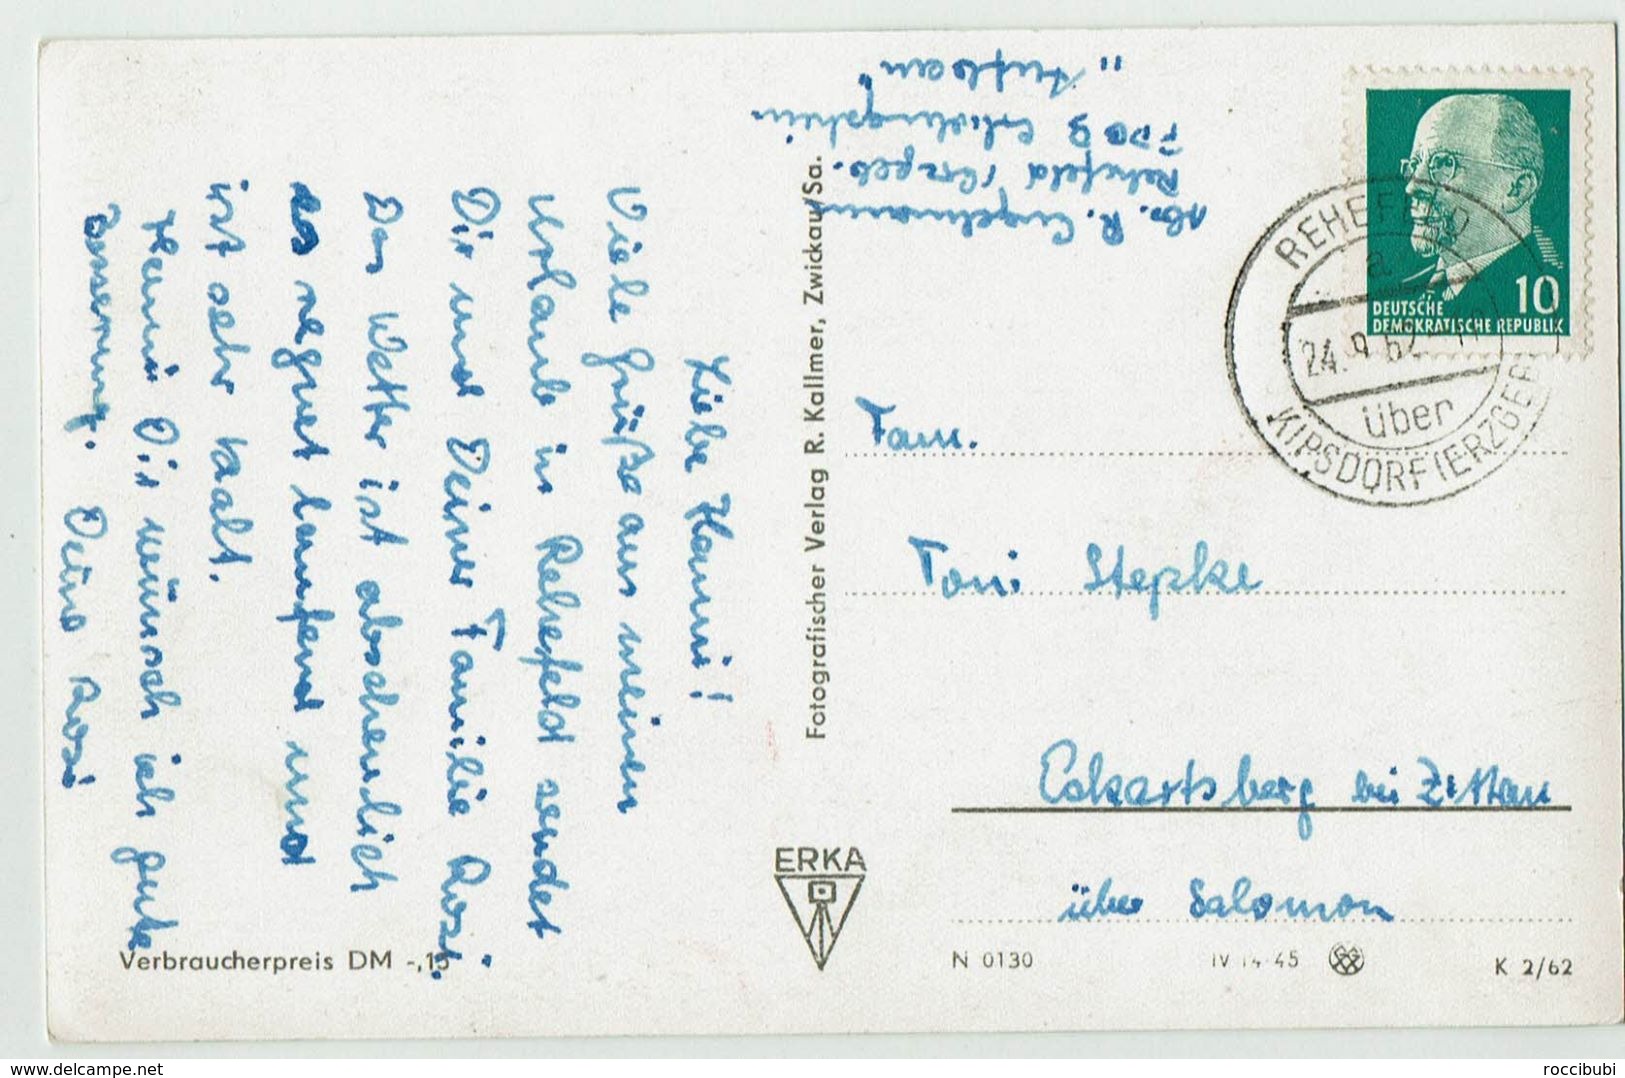 Liebe Hanni!
Viele Grüße aus meinem
Urlaub in Rehefeld sendet
Dir und Deiner Familie Rosi.
Das Wetter ist abscheulich
es regnet laufend und
ist sehr kalt.
Hanni Dir wünsch ich gute
Besserung. Deine Rosi
Verbraucherpreis DM -,15
Fotografischer Verlag R. Kallmer, Zwickau/Sa.
ERKA
Abs. R. Engelmann
Rehefeld /Erzgeb.
FDGB Erholungsheim
"Aufbau"
10
DEUTSCHE
DEMOKRATISCHE REPUBLIK
REHEFELD
a
24.9.62
über
KIPSDORF (ERZGEB
Fam.
Toni Stepke
Eckartsberg bei Zittau
über Salomon
N 0130
IV 14-45
K 2/62
delcampe.net
roccibubi